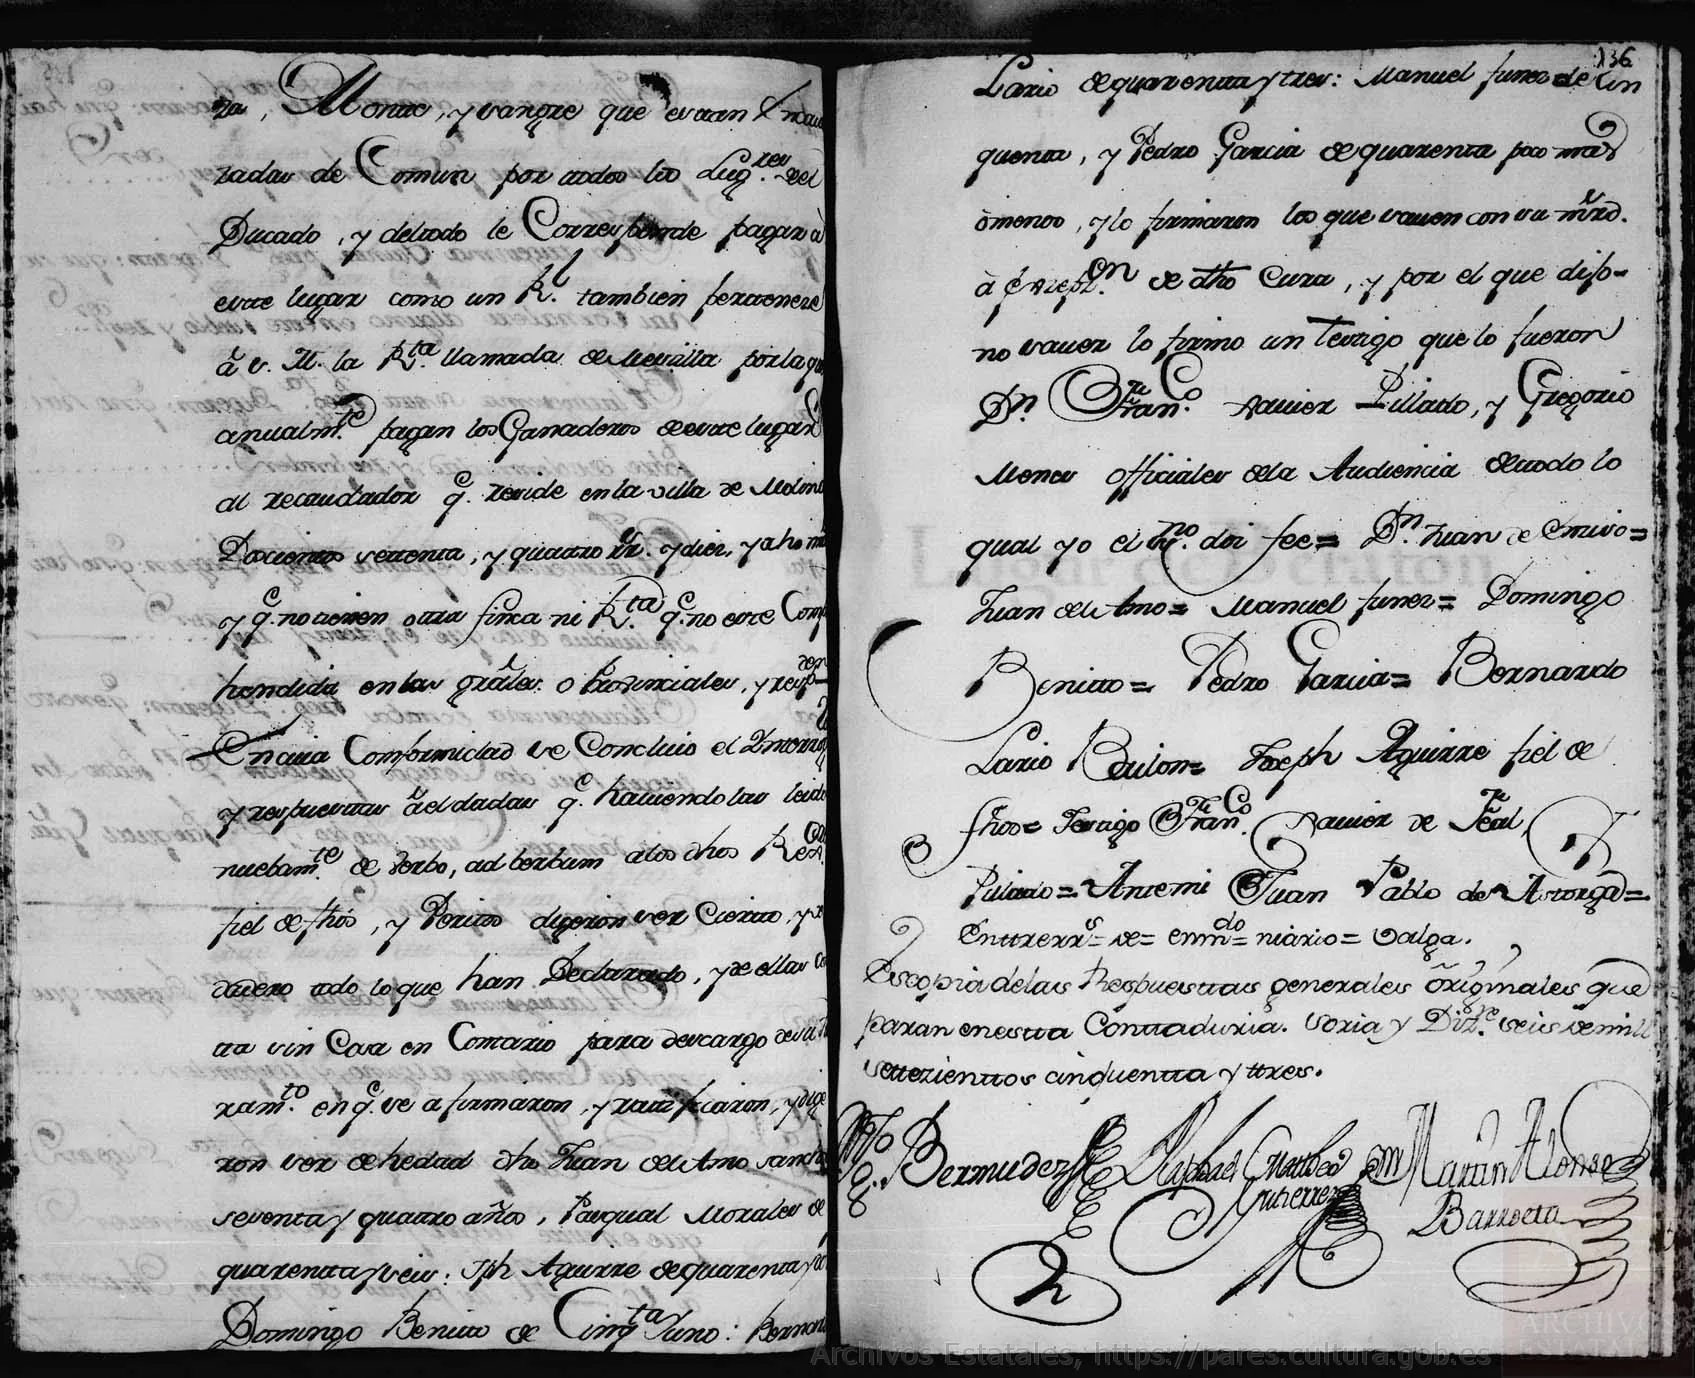 za, Monte, y sangre que estan
zadas de Comun por todos los Lug.res del
Ducado, y deltodo le Corresponde pagar à
este lugar como un R.l tambien pertenece
à S. M. la R.ta llamada de Sevilla porla que
anualm.te pagan los Ganaderos deeste lugar
al recaudador q.e reside enla villa de Molina
Doscientos settenta, y quatro rr.s y diez, y
y q.e notienen otra finca ni R.ta q.e no este Comp
hendida enlas grãles. o Provinciales, y resp
En cuia Conformidad se Concluio el Interrog
y respuestas à el dadas q.e haviendolas leido
nuebam.te de Verbo, ad berbum alos dhos
fiel de fhos, y Peritos digeron ser Cierto, y
dadero todo lo que han Declarado, y de ellas
ta sin Cosa en Contrario para descargo desu
ram.to en q.e se afirmaron, y ratificaron, y dige
ron ser de hedad dho Juan del Amo
sesenta y quatro años, Pasqual Morales de
quarenta y seis: Jph Aguirre de quarenta
Domingo Benito de Cinq.ta y uno: Bernar
136
Lario de quarenta y tres: Manuel funes de Cin
quenta, y Pedro Garcia de quarenta poco mas
ò menos, y lo firmaron los que saven con su mrd.
à excepz.on de dho Cura, y por el que dijo=
no saver lo firmo un Testigo que lo fueron
D.n Fran.co Xavier Pillado, y Gregorio
Menes officiales dela Audiencia detodo lo
qual yo el ss.no doi fee= D.n Juan de
Juan del Amo= Manuel funes= Domingo
Benito= Pedro Garcia= Bernardo
Lario Bailon= Joseph Aguirre fiel de
fhos= Testigo Fran.co Xavier de Leal,
Pillado= Antemi Juan Pablo de Astorga=
Enttrerr.s= de= enm.do= niario= Valga.
Es copia delas Respuesttas generales originales que
paran enestta Conttaduria. Soria y Diz.re seis de mill
settezienttos cinquentta y ttres.
Bermudez Raphael Matheo Martin Alonso
Gutierrez Barroeta
Archivos Estatales, https://pares.cultura.gob.es